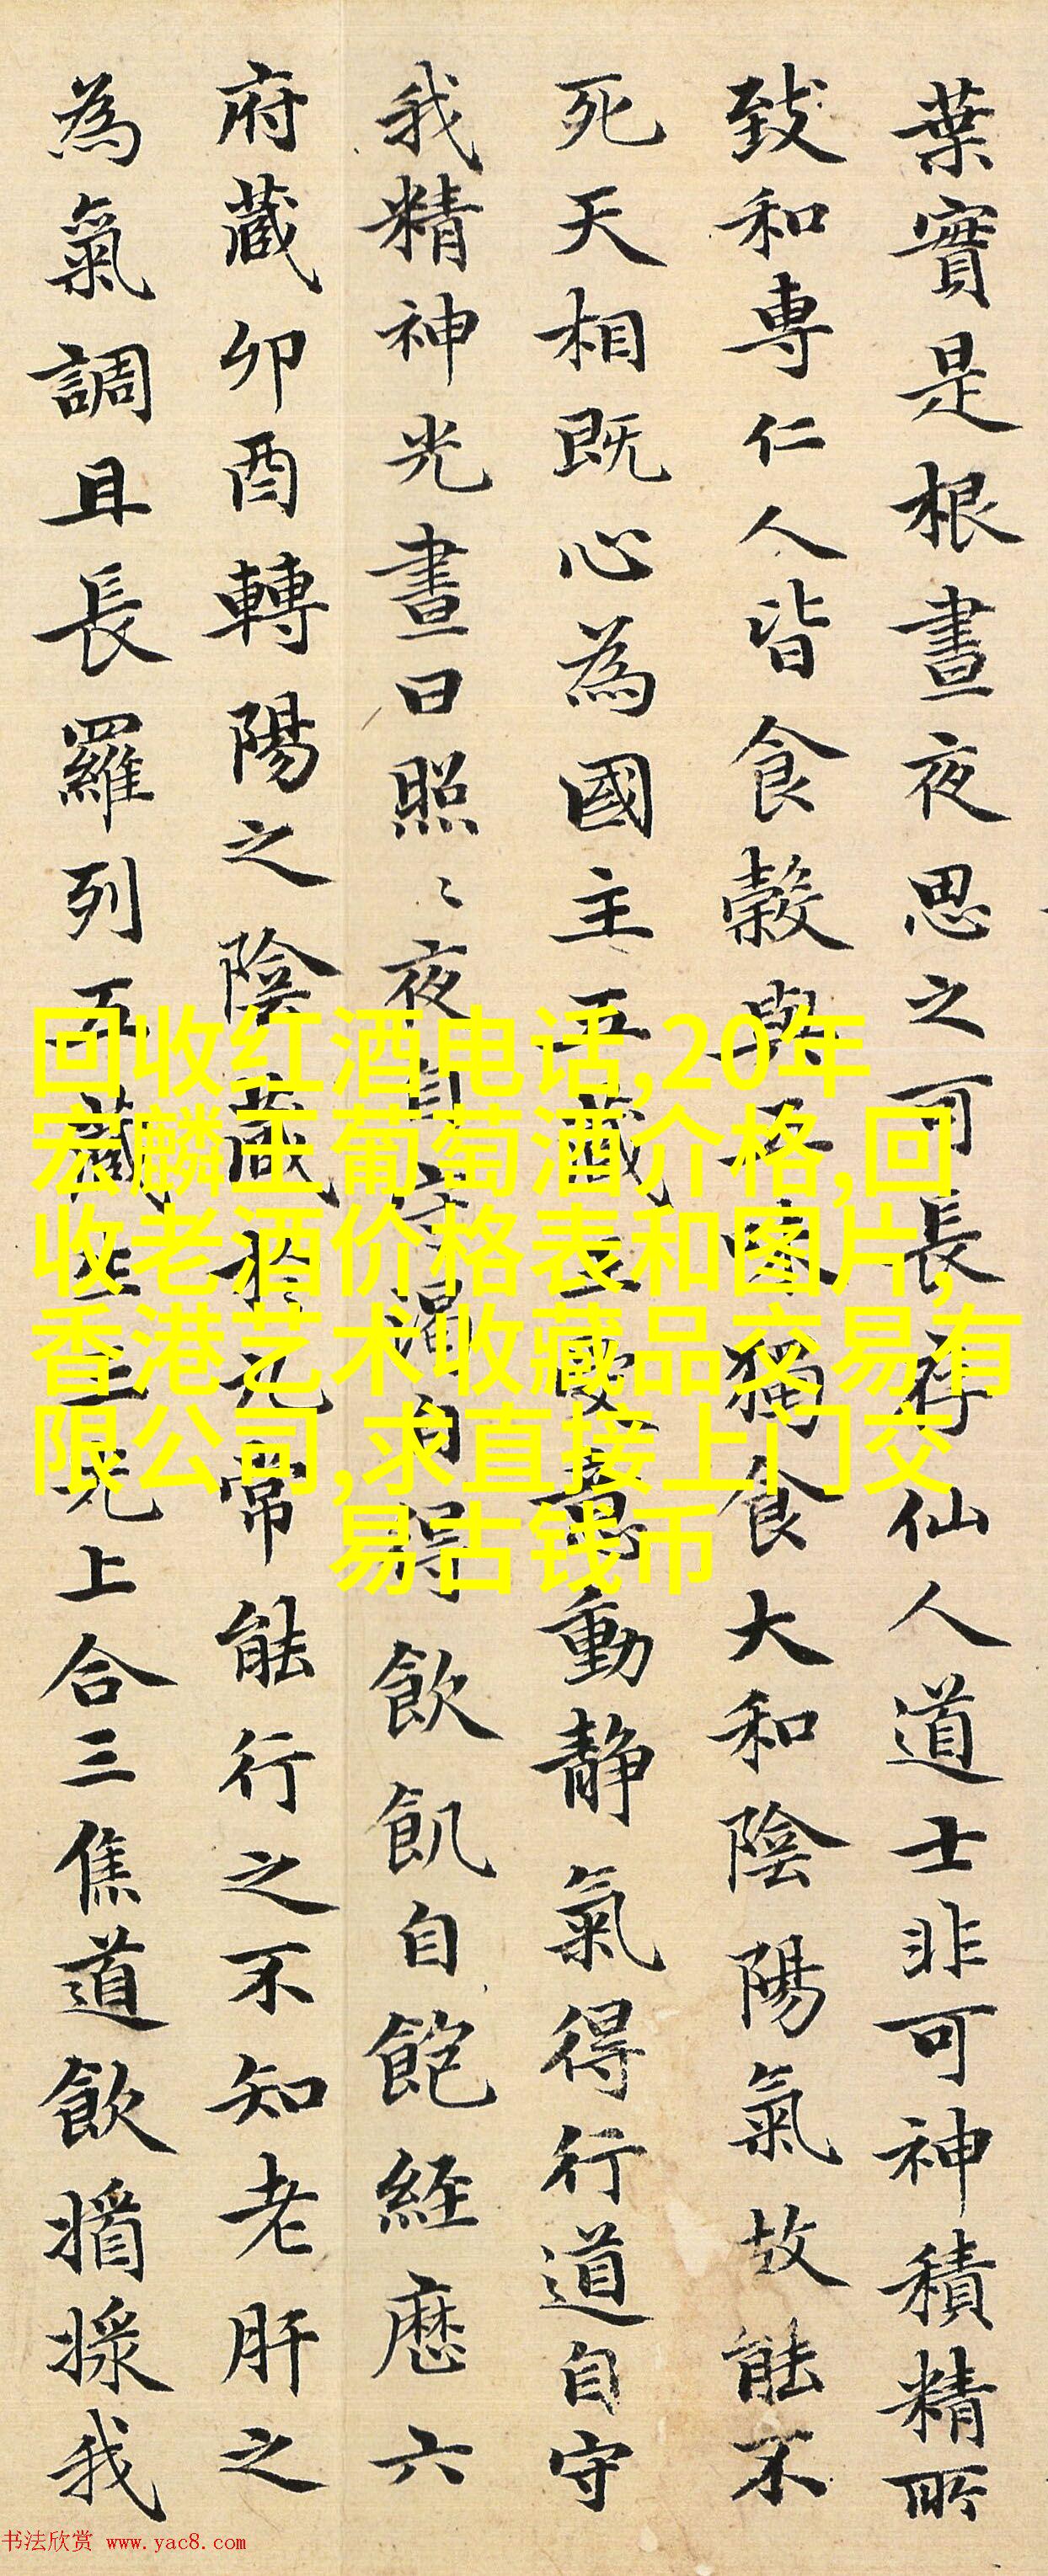 葉實是根晝夜思之可長存仙人道士非可神積精所
致和專仁人皆食榖與五味獨食大和陰陽氣故能不
死天相既心為國主五藏王受意動静氣得行道自守
我精神光晝日照〻夜自守渴自得飲飢自飽經歷六
府藏卯酉轉陽之陰藏於九常能行之不知老肝之
為氣調且長羅列五藏生三光上合三焦道飲
我
回收红酒电话,20年
宏麟王葡萄酒介格,回
收老酒价格表和图片,
香港艺术收藏品交易有
限公司,求直接上门交
易古钱币
书法欣赏 www.yac8.com